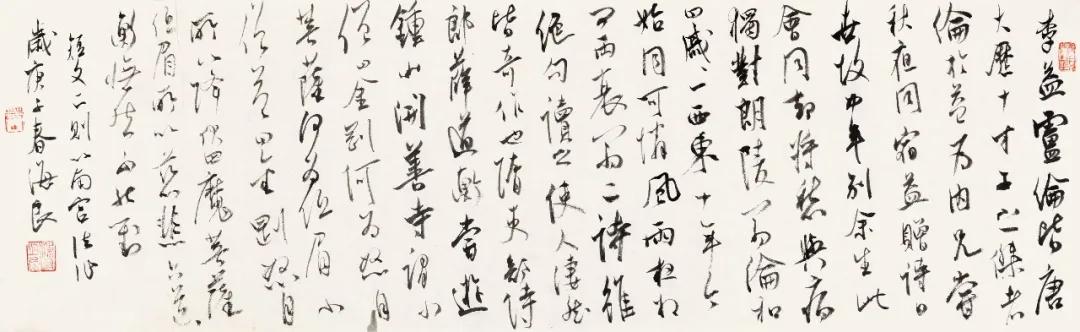 李益盧倫皆唐
大歷十才子之傑者
倫於益为内兄嘗
秋夜同宿益贈詩曰
世故中年别余生此
會同却将愁與病
獨對朗陵翁倫和
曰戚戚一西東十年今
始同可憐風雨夜相
問兩衰翁二詩雖
絶句讀之使人凄然
皆奇作也隋吏部侍
郎薛道衡嘗遊
鍾山開善寺謂小
僧曰金剛何为怒目
菩薩何为低眉小
僧答曰金剛怒目
所以降伏四魔菩薩
低眉所以慈悲六道
衡憮然不能對
短文二则
歲庚子春海良